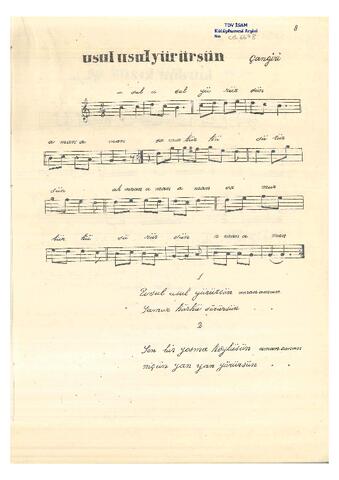 TDV İSAM
Kütüphanesi Arşivi
No
8
usul usul yürürsün Çangiri
- sul u sul yü rür sün
a man a man sa mur kür kü sü rür
sün al aman a man sa mur
kür kü sü rür sün a man a man
1
Pusul usul yürürsün aman aman
Samur kürkü sürürsün . . .
2
Sen bir yosma köylüsün aman aman
niçün yan yan yürürsün . . .